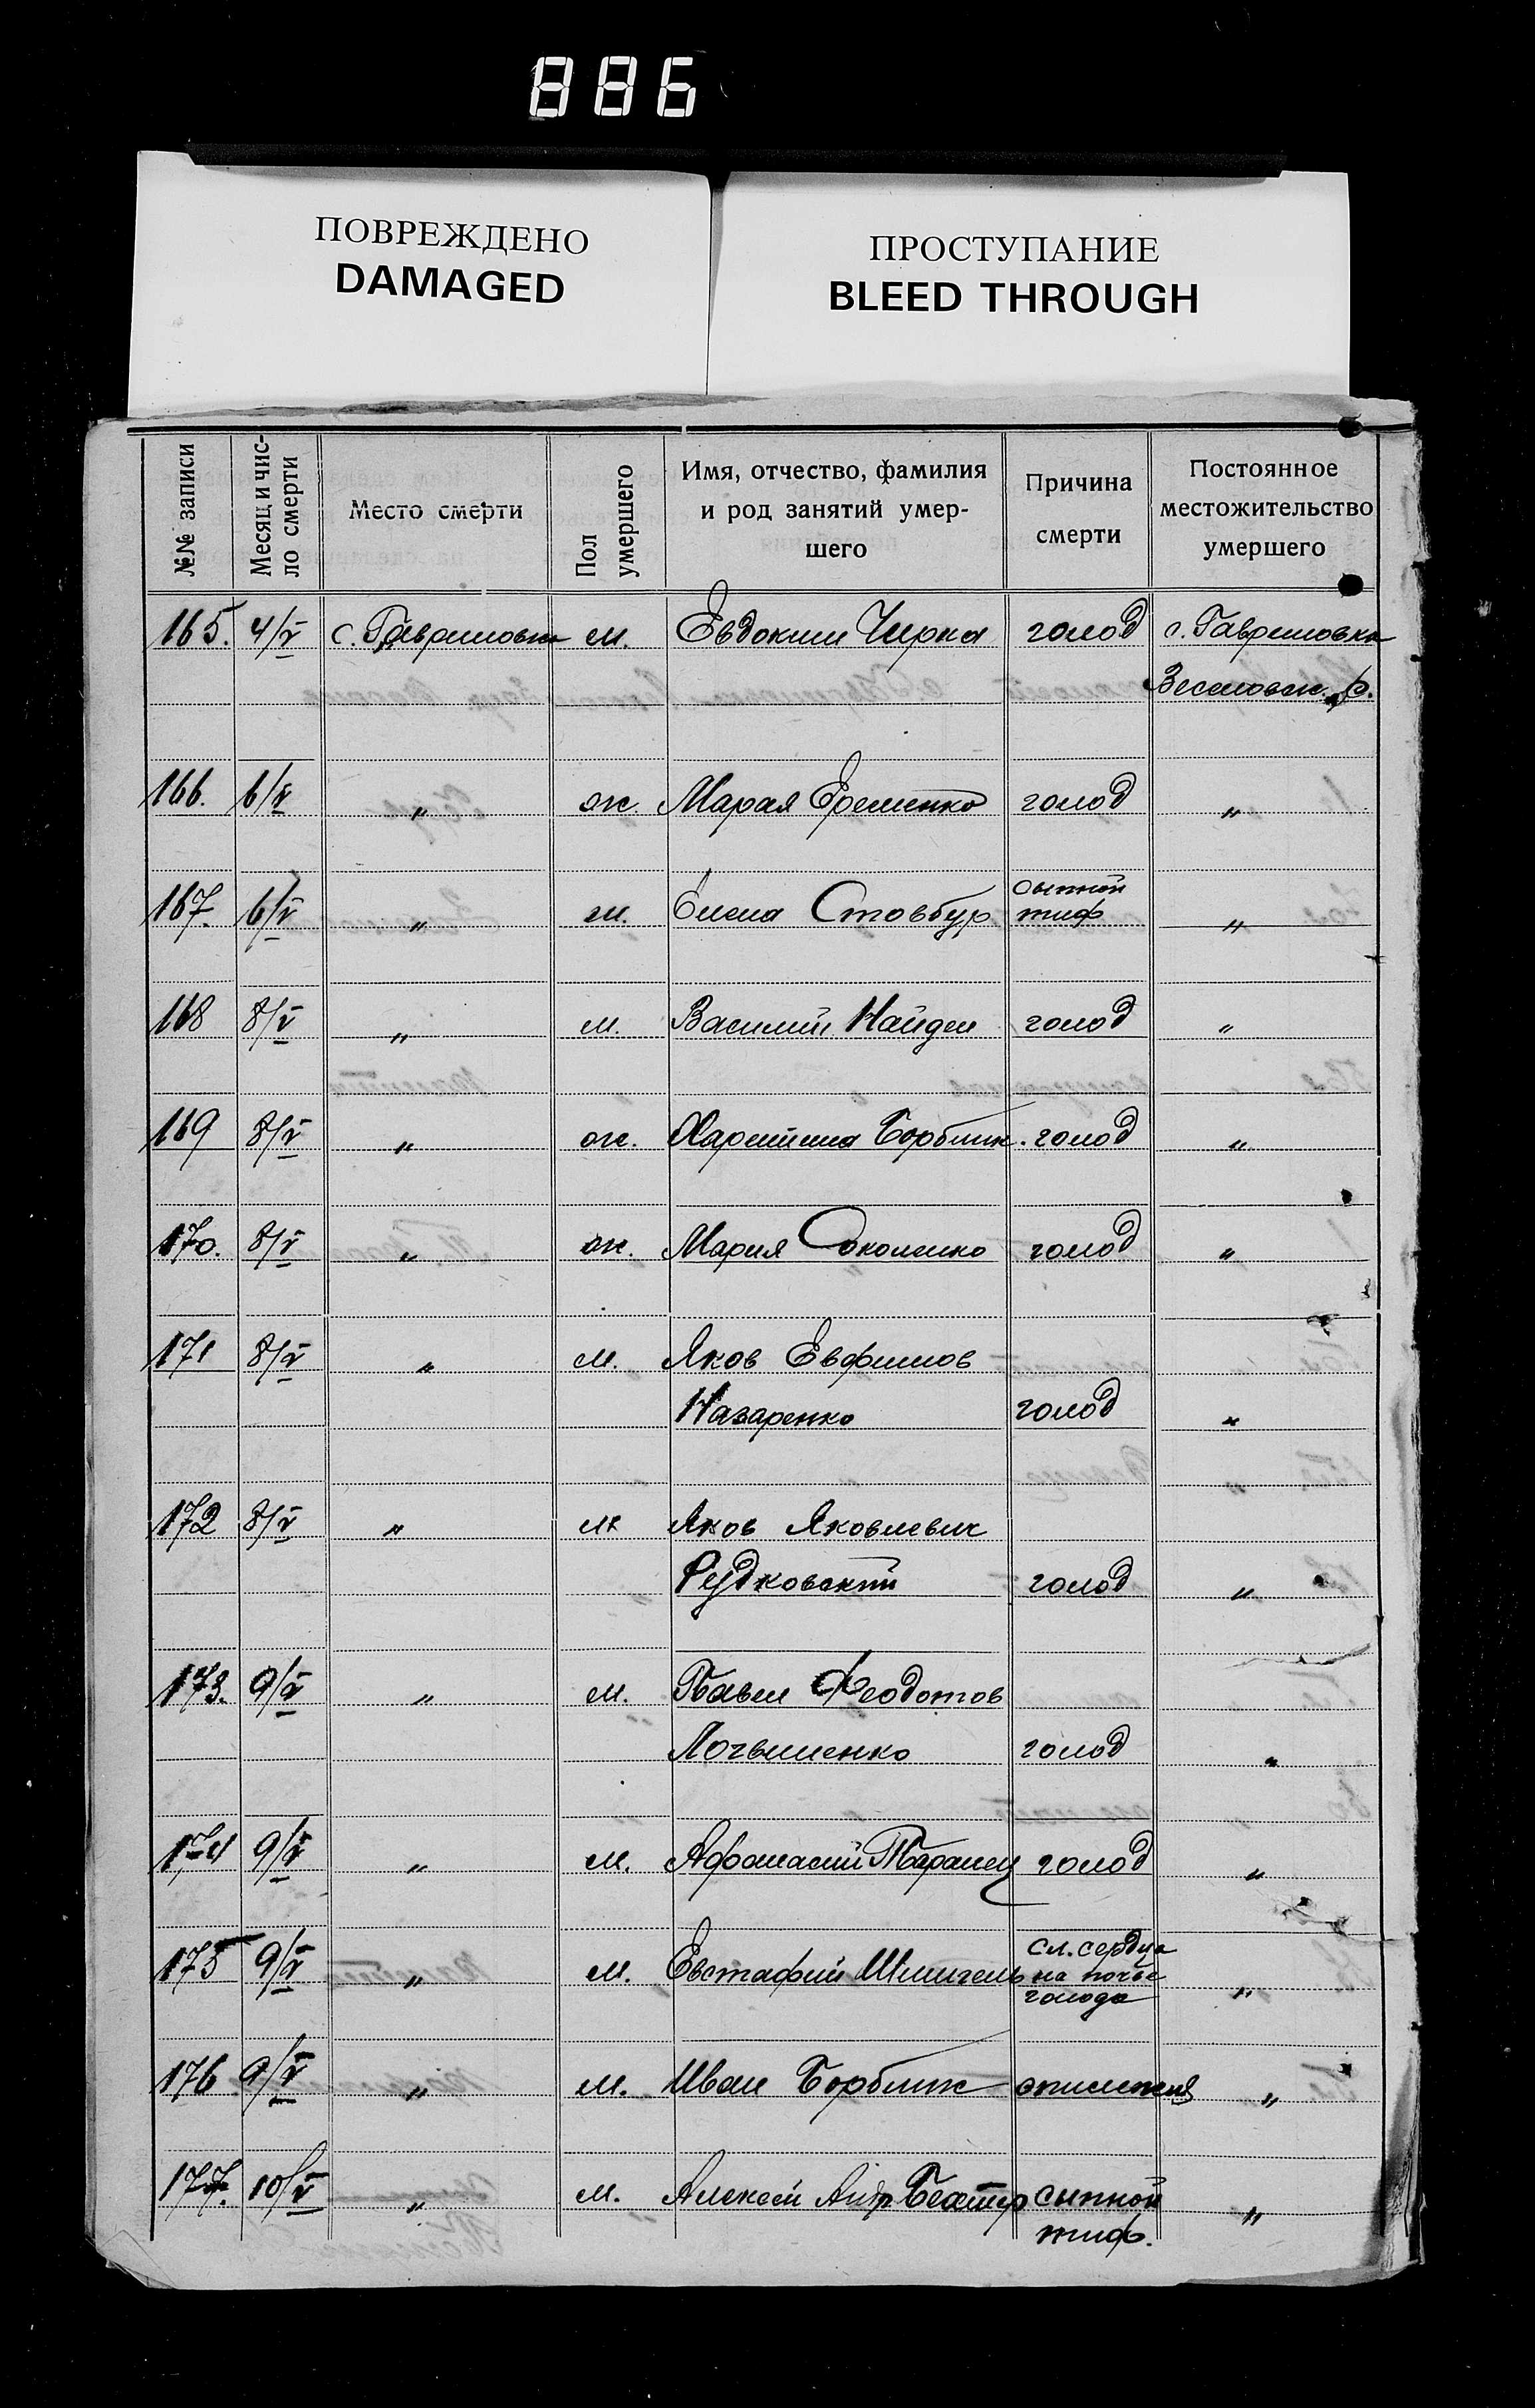 886
ПОВРЕЖДЕНО
DAMAGED
ПРОСТУПАНИЕ
BLEED THROUGH
№№ записи
Месяц и чис-
ло смерти
Место смерти
Пол
умершего
Имя, отчество, фамилия
и род занятий умер-
шего
Причина
смерти
Постоянное
местожительство
умершего
165. 4/V с. Гавриловка м. Евдоким Чирка голод с. Гавриловка
р.
166. 6/V " ж. Марая Еременко голод "
167. 6/V " м. Стовбур сыпной
тиф "
168 8/V " м. Василий Найден голод "
169 8/V " ж. Харитина голод "
170. 8/V " ж. Мария Соколенко голод "
171 8/V " м. Яков Евфимов
Назаренко голод "
172 8/V " м Яков Яковлевич
Рудковский голод "
173. 9/V " м. Павел Феодотов
Логвиненко голод "
174 9/V " м. Афанасий Таранец голод "
175 9/V " м. Евстафий сл. сердца
на почве
голода "
176 9/V " м. Иван "
177. 10/V " м. Алексей Андр сыпной "
тиф.